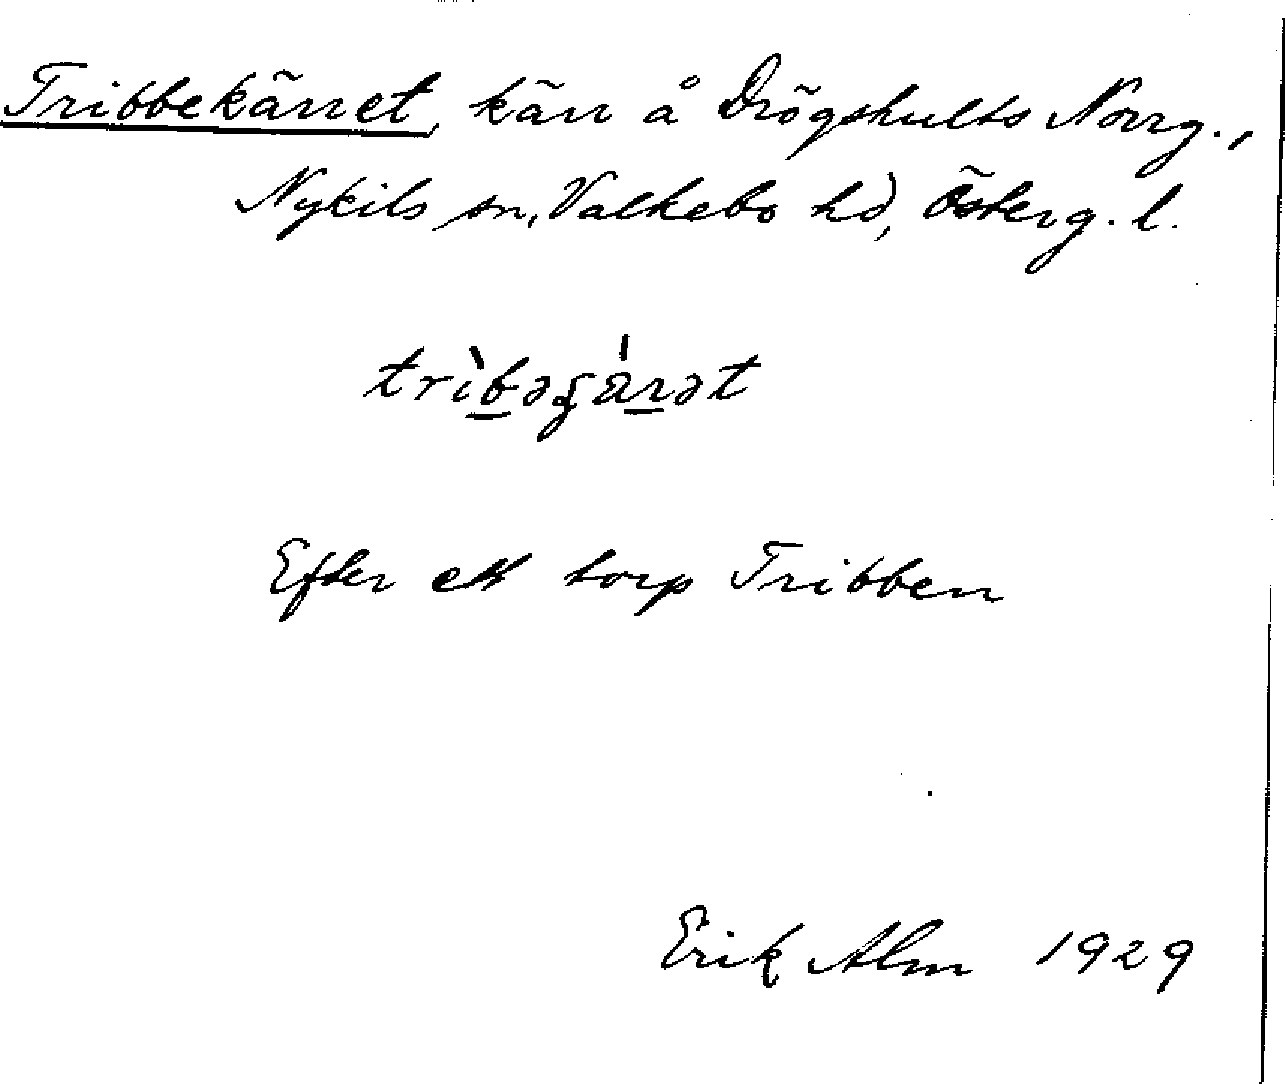 Tribbekärret, kärr å Drögshults Norrg.,
Nykils sn, Valkebo hd, Österg. l.
trìb̲əɕár̲ət
Efter ett torp Tribben
Erik Alm 1929